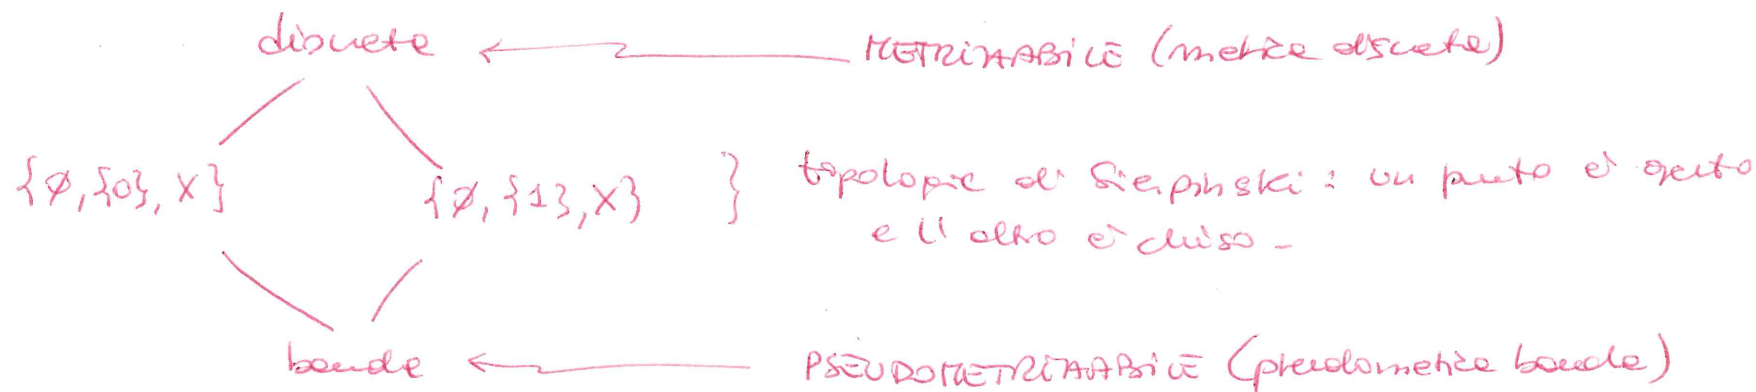 discreta ← METRIZZABILE (metrica discreta)
{∅,{0},X} {∅,{1},X} } topologie di Sierpinski: un punto è aperto
e l'altro è chiuso -
banale ← PSEUDOMETRIZZABILE (pseudometrica banale)